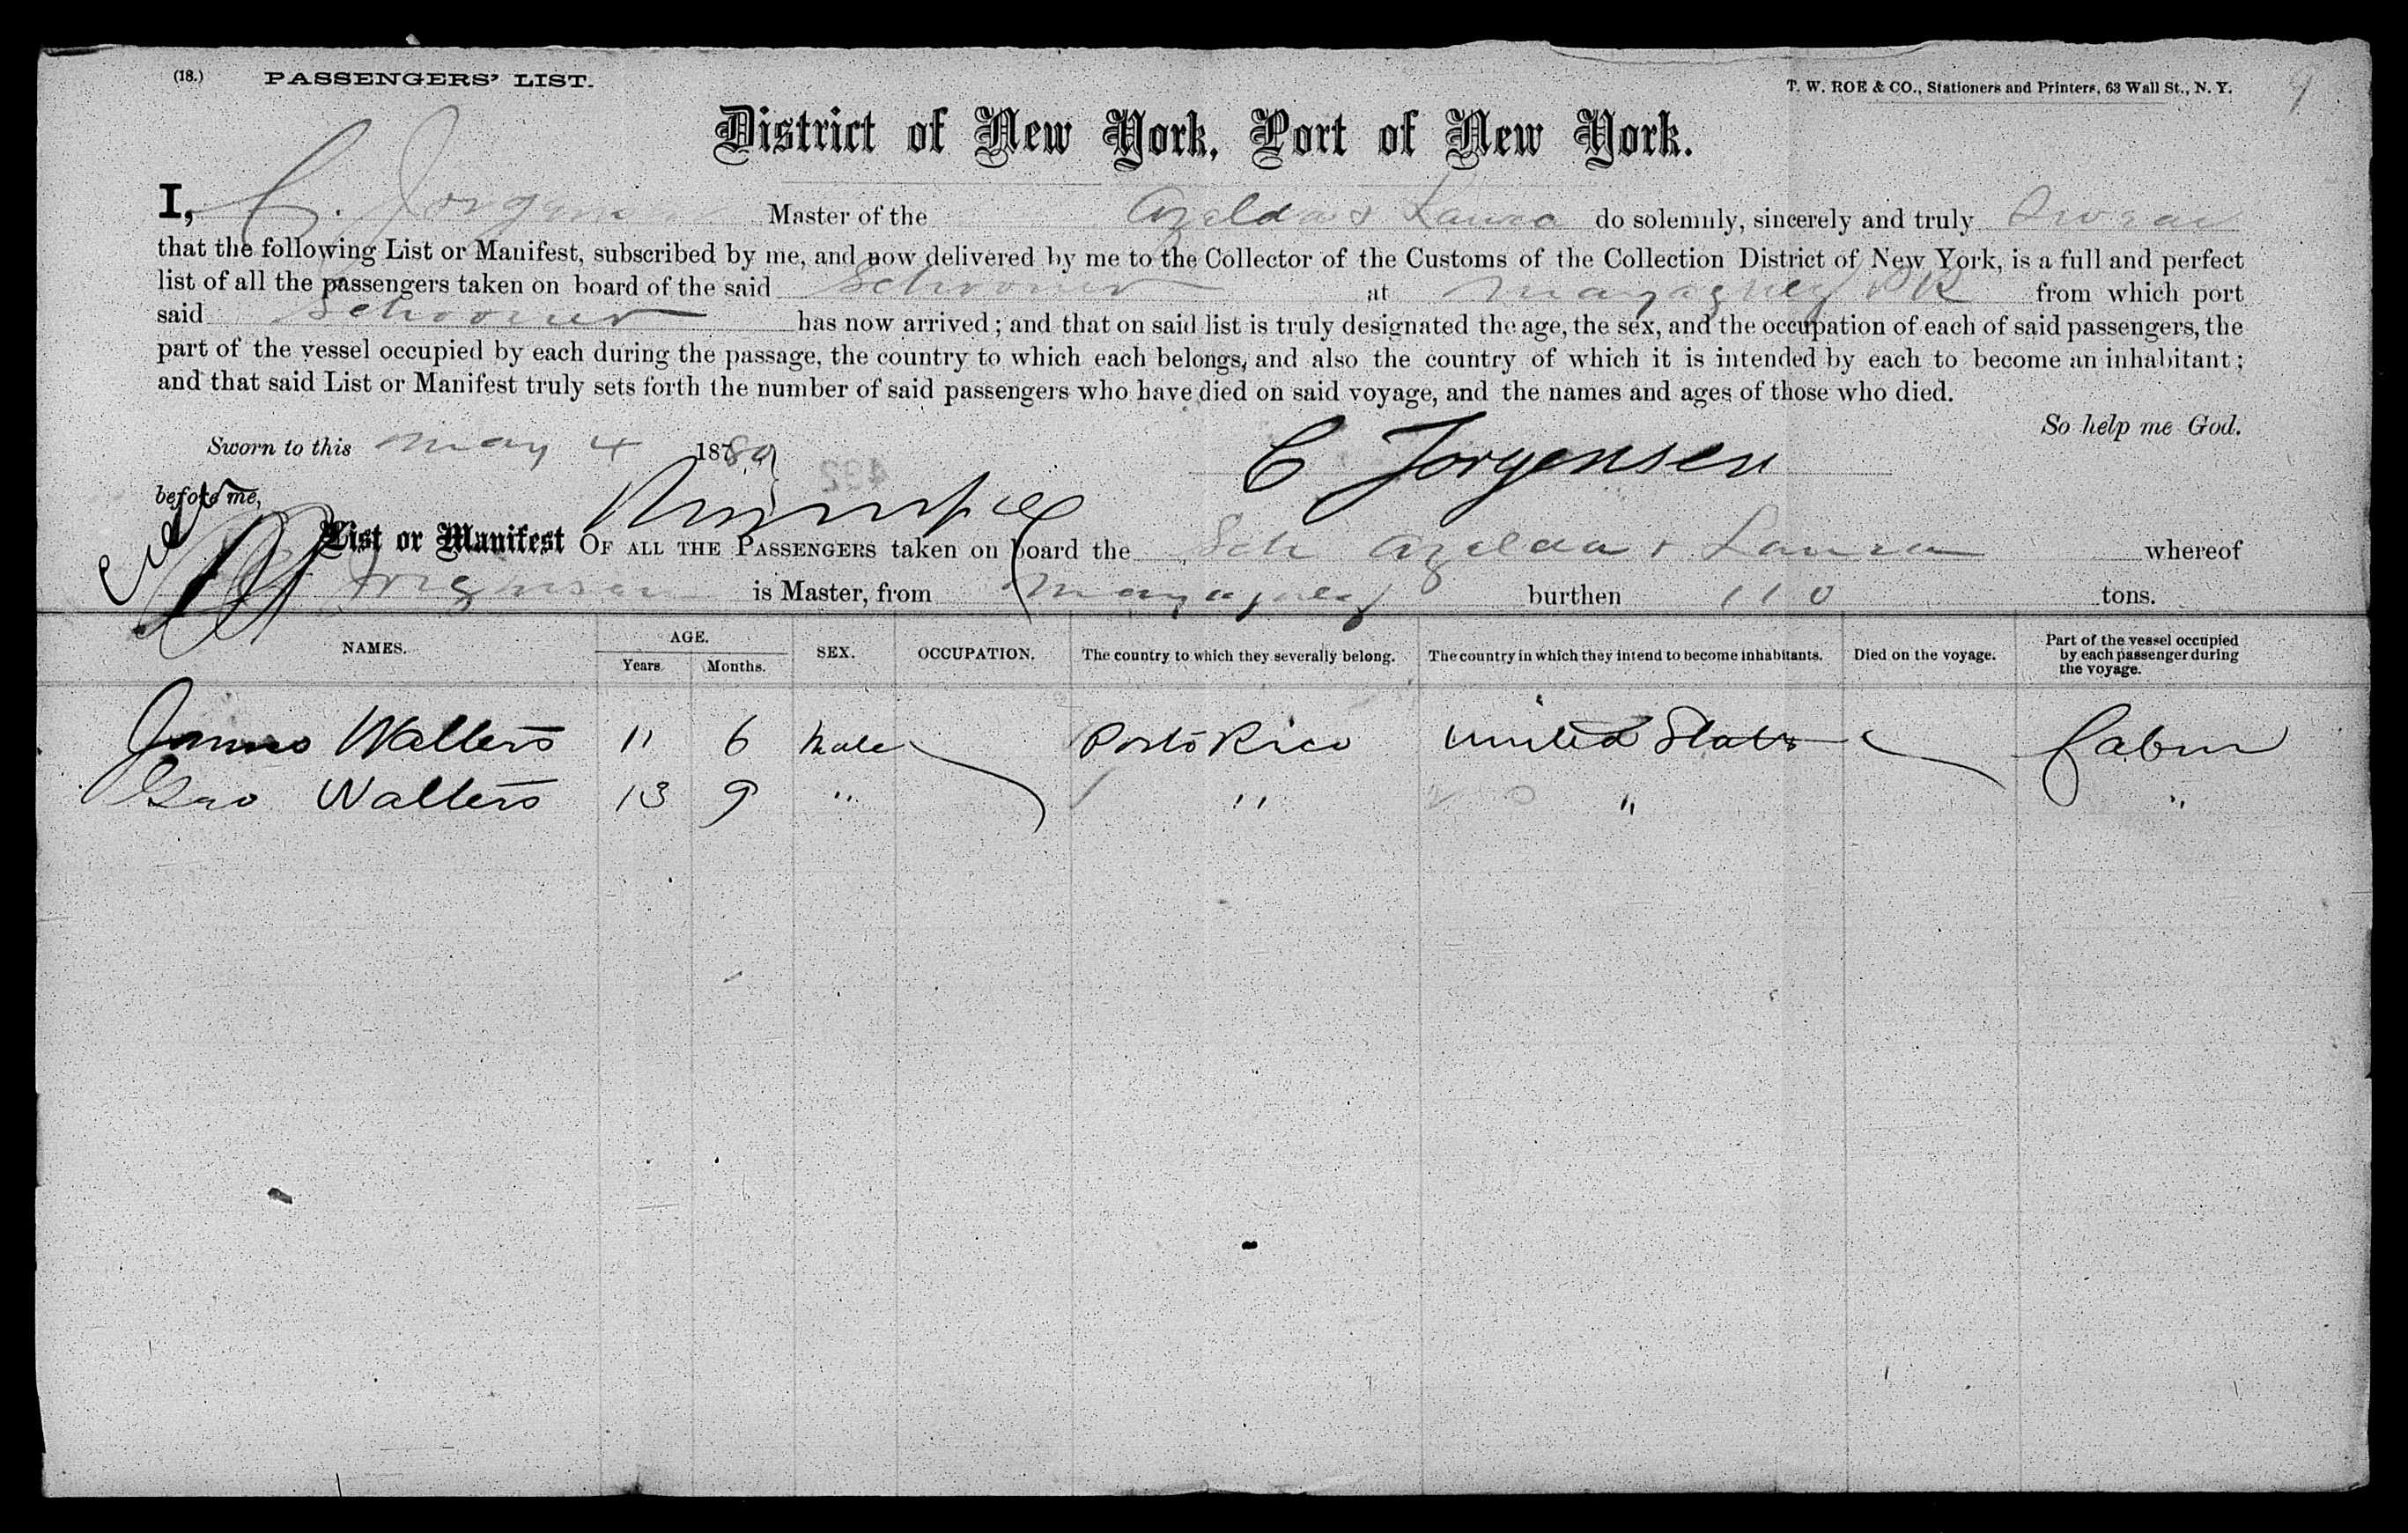 (18.) PASSENGERS' LIST. T. W. ROE & CO., Stationers and Printers, 63 Wall St., N. Y. 9
District of New York, Port of New York.
I, C. Jorgensen Master of the Azelda & Laura do solemnly, sincerely and truly Swear
that the following List or Manifest, subscribed by me, and now delivered by me to the Collector of the Customs of the Collection District of New York, is a full and perfect
list of all the passengers taken on board of the said Schooner at Mayaguez PR from which port
said Schooner has now arrived; and that on said list is truly designated the age, the sex, and the occupation of each of said passengers, the
part of the vessel occupied by each during the passage, the country to which each belongs, and also the country of which it is intended by each to become an inhabitant;
and that said List or Manifest truly sets forth the number of said passengers who have died on said voyage, and the names and ages of those who died.
So help me God.
Sworn to this May 4 1880
C Jorgensen
before me,
List or Manifest OF ALL THE PASSENGERS taken on board the Sch Azelda & Laura whereof
Jorgensen is Master, from Mayaguez burthen 110 tons.
NAMES. AGE. Years. Months. SEX. OCCUPATION. The country to which they severally belong. The country in which they intend to become inhabitants. Died on the voyage. Part of the vessel occupied by each passenger during the voyage.
James Walters 11 6 Male Porto Rico United States Cabin
Geo Walters 13 9 " " " "